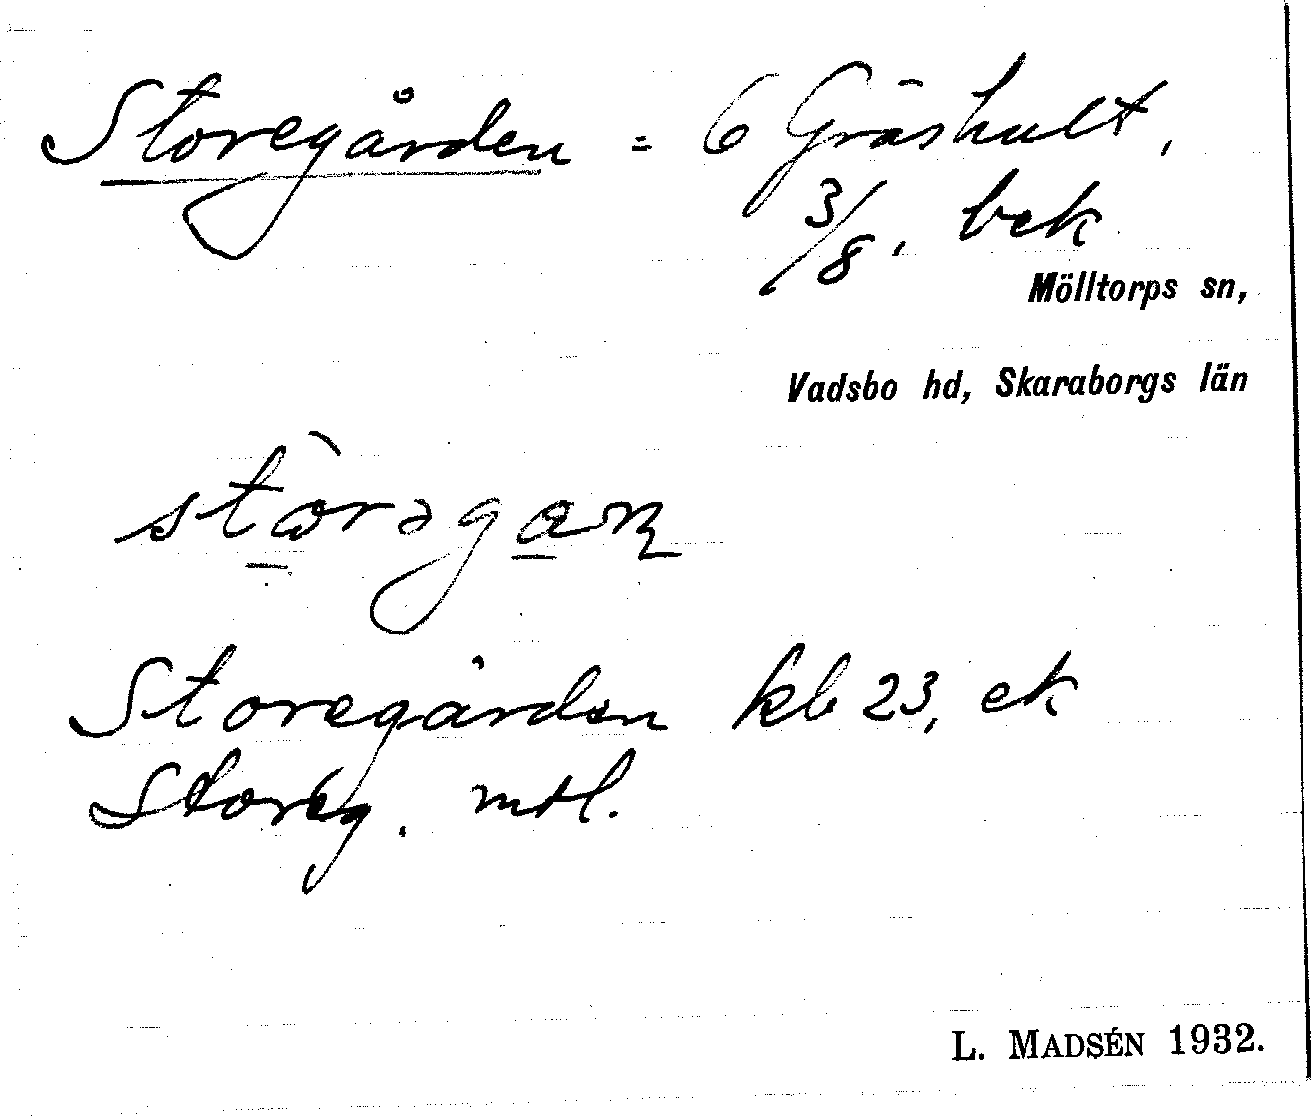 Storegården = 6 Gräshult,
3/8, bek
Mölltorps sn,
Vadsbo hd, Skaraborgs län
Storegården kb 23, ek
Storeg. mtl.
L. MADSÉN 1932.